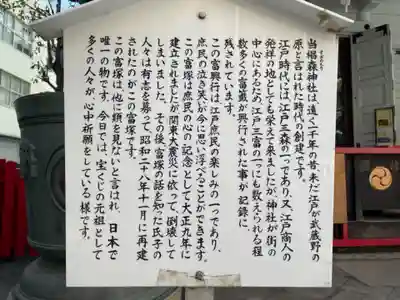 当椙森神社は遠く一千年の昔、未だ江戸が武蔵野の
原と言はれた時代の創建です。
江戸時代には江戸三森の一つであり、又、江戸商人の
発祥の地としても栄えて来ましたが、神社が街の
中心にあるため、江戸三富の一つにも数えられる程
数多くの富籤が興行された事が記録に
残されています。
この富興行は江戸庶民の楽しみの一つであり、
庶民の泣き笑が今に思い浮べることができます。
この富塚は庶民の心の記念として大正九年に
建立されましたが関東大震災に依って倒壊して
しまいました。その後、富塚の話を知った氏子の
人々は有志を募って、昭和二十八年十一月に再建
されたのがこの富塚です。
この富塚は他に類を見ないと言はれ、日本で
唯一の物です。今日では、宝くじの元祖として
多くの人々が、心中祈願をしている様です。